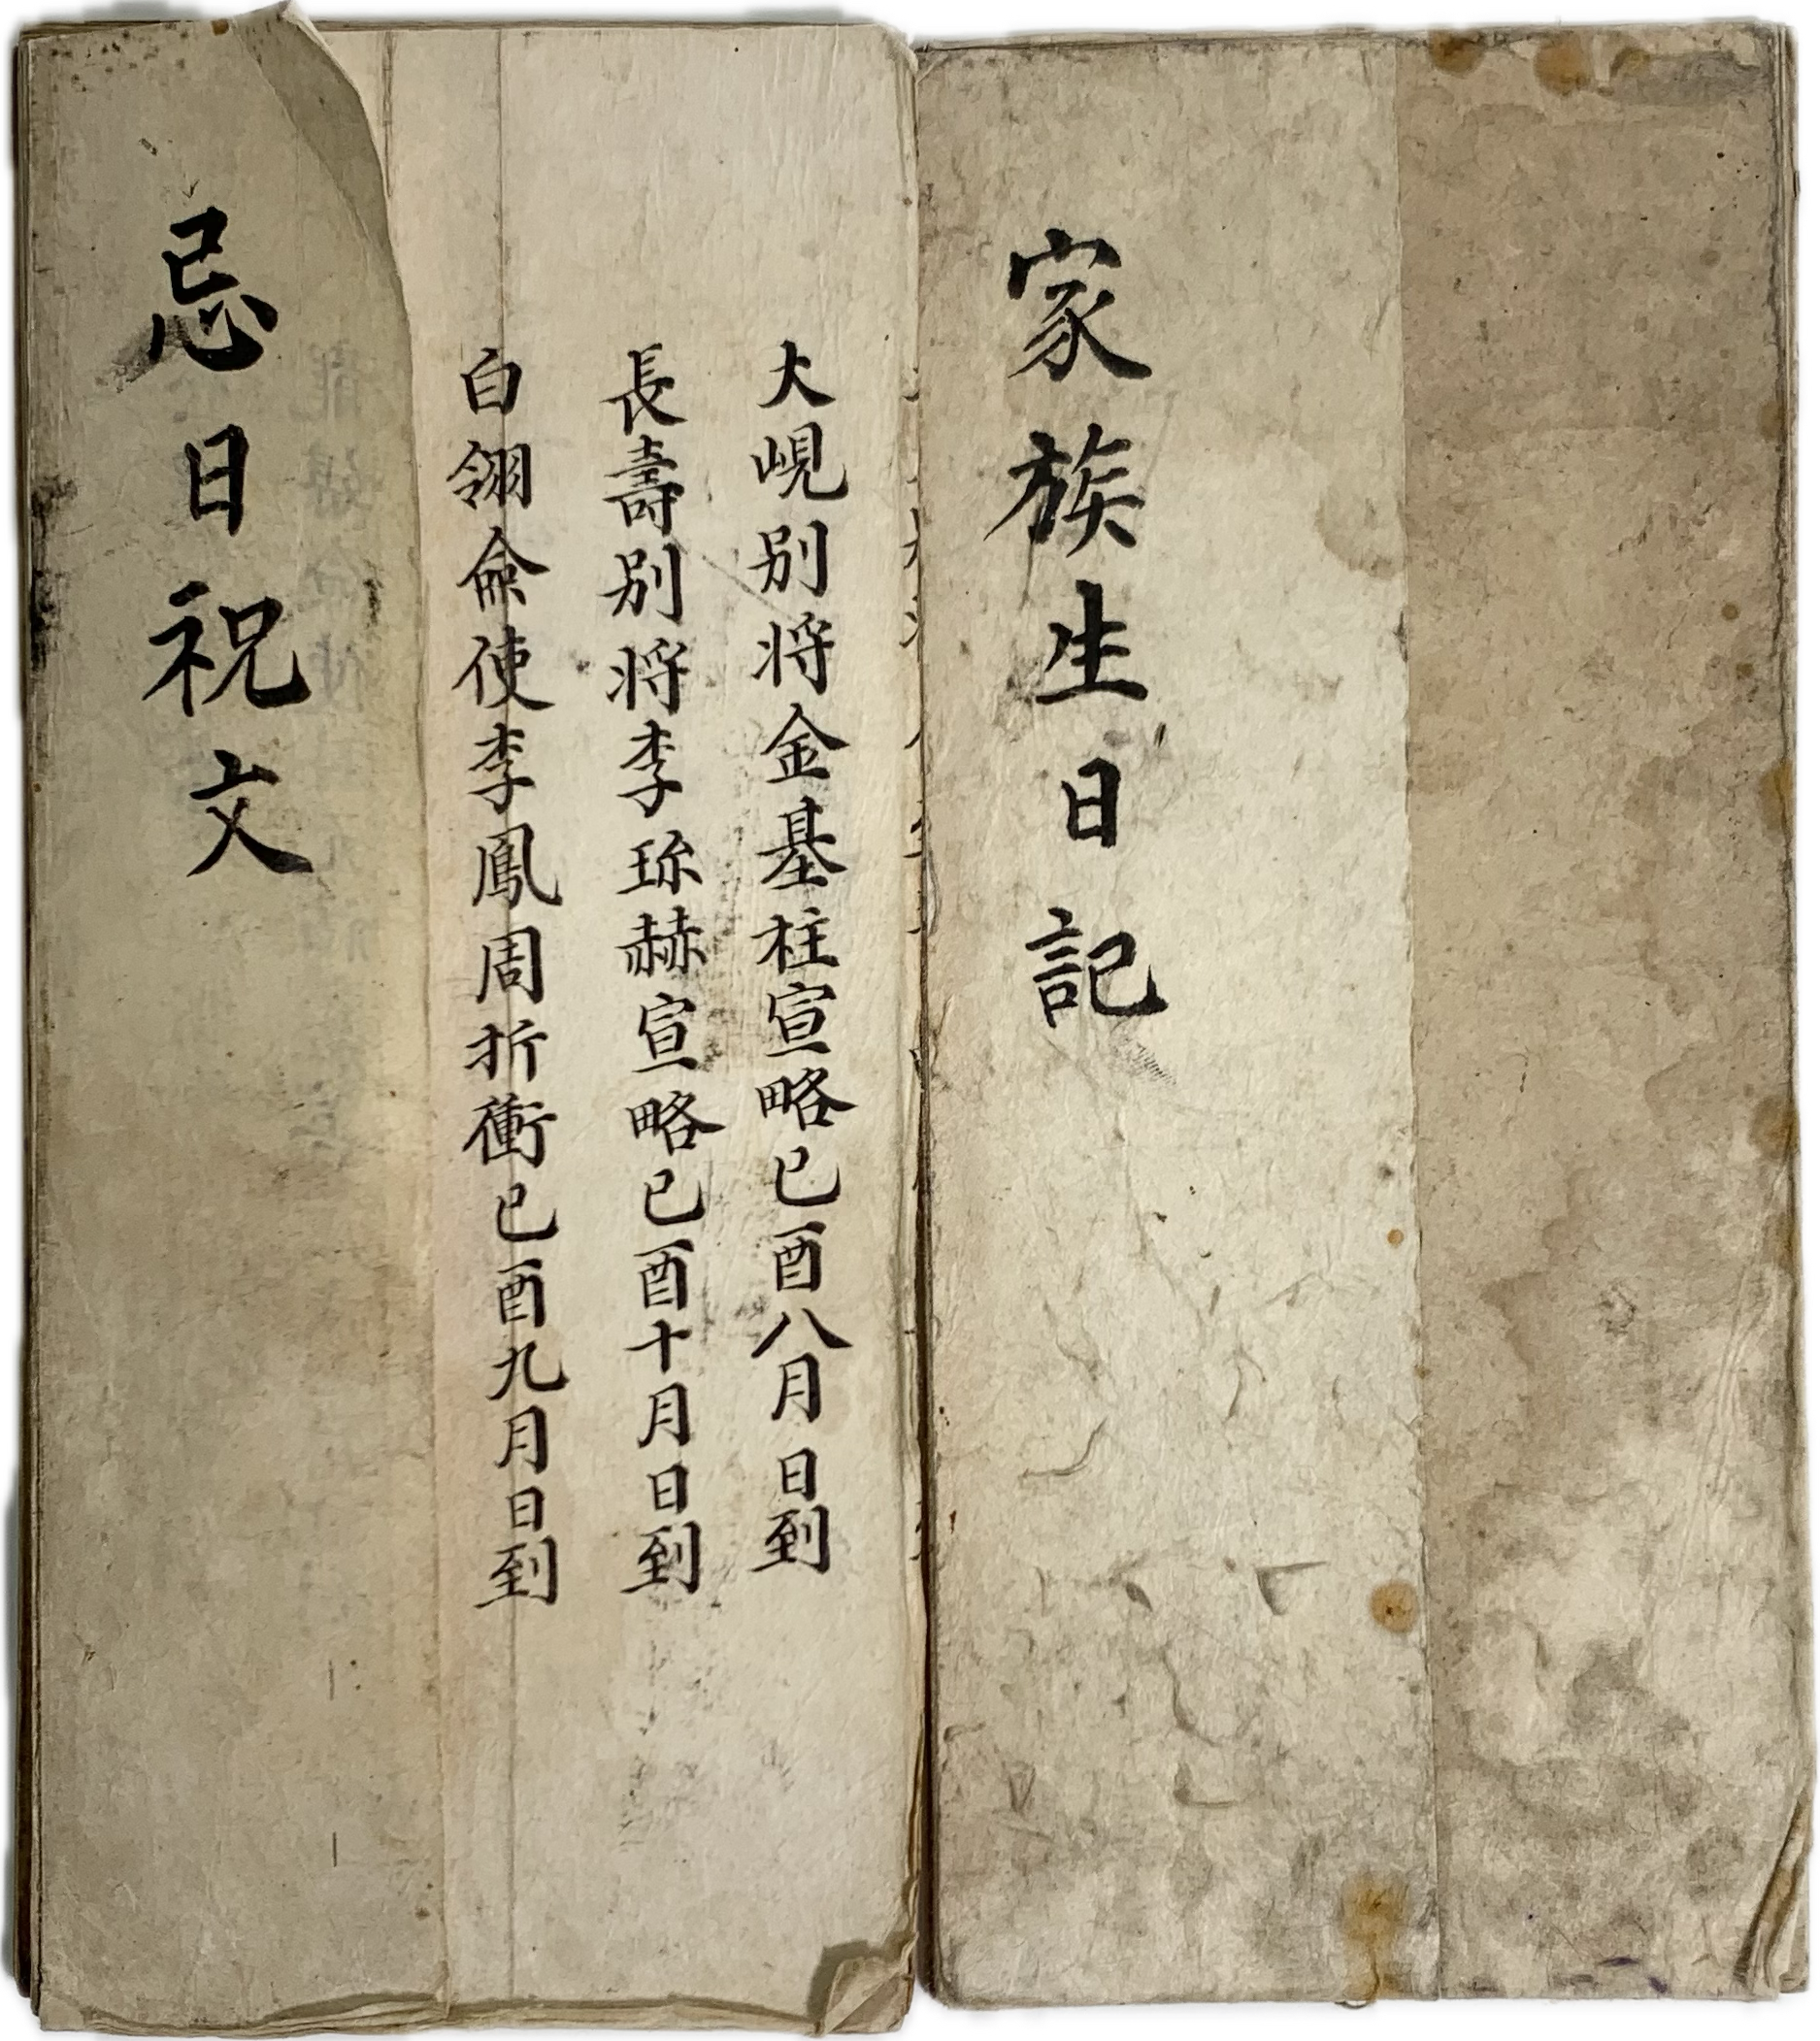 家族生日記
大峴別将金基柱宣略已酉八月日到
長壽別将李珎赫宣略已酉十月日到
白翎僉使李鳳周折衝已酉九月日到
忌日祝文